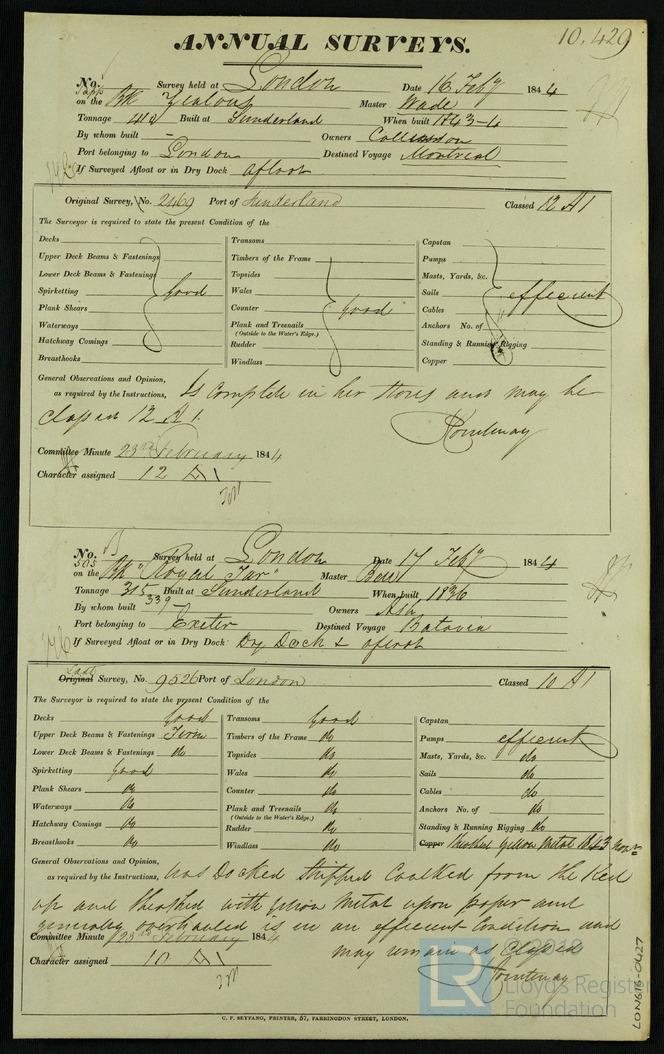 ANNUAL SURVEYS.
10,429
No. Survey held at London Date 16 Feby 1844
on the Bk Zealous Master Wade
Tonnage 419 Built at Sunderland When built 1843-4
By whom built - Owners
Port belonging to London Destined Voyage Montreal
If Surveyed Afloat or in Dry Dock afloat
Original Survey, No. 2469 Port of Sunderland Classed 12 A1
The Surveyor is required to state the present Condition of the
Decks
Upper Deck Beams & Fastenings
Lower Deck Beams & Fastenings
Spirketting good
Plank Shears
Waterways
Hatchway Comings
Breasthooks
Transoms
Timbers of the Frame
Topsides
Wales
Counter good
Plank and Treenails
(Outside to the Water's Edge.)
Rudder
Windlass
Capstan
Pumps
Masts, Yards, &c.
Sails efficient
Cables
Anchors No. of
Standing & Running Rigging
Copper
General Observations and Opinion, as required by the Instructions, Is Complete in her Stores and may be
Classed 12 A1.
Courtenay
Committee Minute 23rd February 1844
Character assigned 12 A1
No. Survey held at London Date 17 Feby 1844
505
on the Bk "Royal Tar" Master Bell
Tonnage 315 Built at Sunderland When built 1836
339
By whom built - Owners Ash
Port belonging to Exeter Destined Voyage Batavia
If Surveyed Afloat or in Dry Dock Dry Dock & afloat
Last
Original Survey, No. 9526 Port of London Classed 10 A1
The Surveyor is required to state the present Condition of the
Decks Good
Upper Deck Beams & Fastenings Firm
Lower Deck Beams & Fastenings do
Spirketting Good
Plank Shears do
Waterways do
Hatchway Comings do
Breasthooks do
Transoms Good
Timbers of the Frame do
Topsides do
Wales do
Counter do
Plank and Treenails do
(Outside to the Water's Edge.)
Rudder do
Windlass do
Capstan
Pumps efficient
Masts, Yards, &c. do
Sails do
Cables do
Anchors No. of do
Standing & Running Rigging do
Copper Sheathed Yellow Metal 1843
General Observations and Opinion, as required by the Instructions, Was Docked Stripped Caulked from the Keel
up and Sheathed with Yellow Metal upon paper and
generally overhauled is in an efficient Condition and
may remain as Classed
Courtenay
Committee Minute 23rd February 1844
Character assigned 10 A1
C. F. SEYFANG, PRINTER, 57, FARRINGDON STREET, LONDON.
LON616-0427
© 2018
LR
Lloyd's Register
Foundation